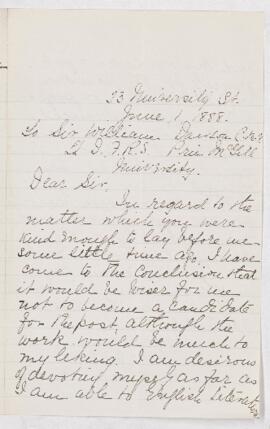 23 University St.
June 1, 1888.
To Sir William Dawson C.M.G
LL.D. F.R.S. Prin McGill
University.
Dear Sir,
In regard to the
matter which you were
kind enough to lay before me
some little time ago, I have
come to the conclusion that
it would be wiser for me
not to become a candidate
for the post, although the
work would be much to
my liking. I am desirous
of devoting myself as far as
I am able to English Literature